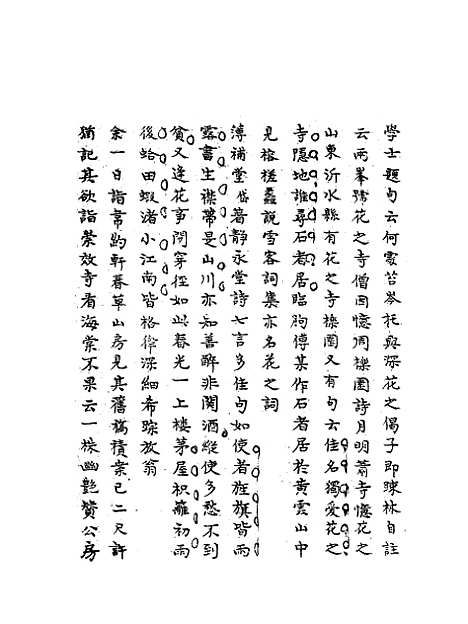 學士題句云何處苔岑托與深花之偈子即疎林自註
云兩峯號花之寺僧因憶周櫟園詩月明蕭寺憶花之
山東沂水縣有花之寺櫟園又有句云佳名獨愛花之
寺隱地誰尋石者居臨朐傅某作石者居於黄雲山中
見榕槎蠡說雪客詞集亦名花之詞
溥補堂岱簹靜永堂詩七言多佳句如使者旌旗皆雨
露書生襟帶是山川亦知善醉非關酒縱使多愁不到
貧又逢花事閒穿徑如此春光一上樓茅屋枳籬初雨
後蛤田蝦渚小江南皆格律深細希踪放翁
余一日詣韋約軒暮草山房見其舊稿積案已二尺許
猶記其欲詣崇效寺看海棠不果云一株幽艷贊公房